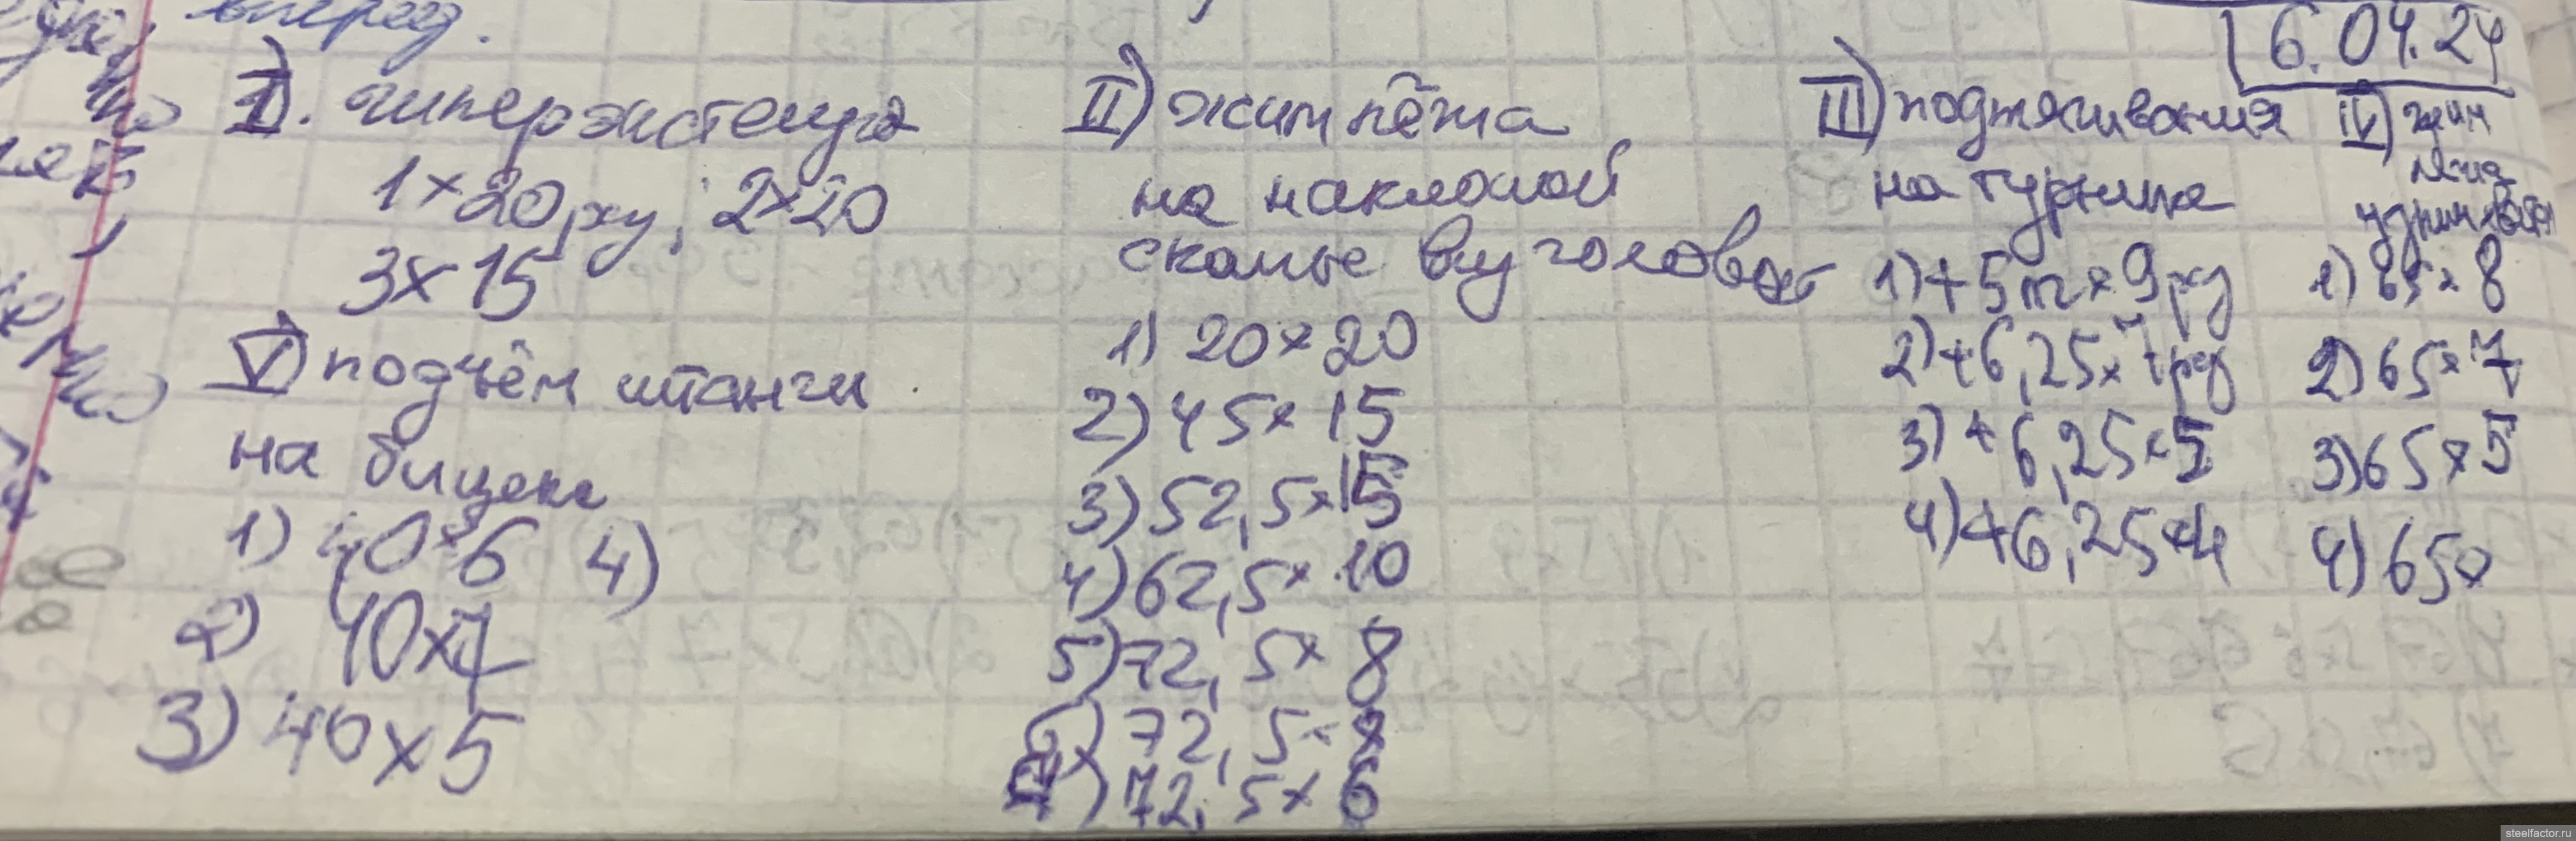 вперед.
16.04.24
I). гиперэкстенз
1×20 ; 2×20
3×15
II) жим лёжа
на наклоной
скамье вку головой
1) 20×20
2) 45×15
3) 52,5×15
4) 62,5×10
5) 72,5×8
6) 72,5×8
7) 72,5×6
III) подтягивания
на турнике
1) +5 ×9
2) +6,25×7
3) +6,25×5
4) +6,25×4
IV) жим
лёжа
1) 65×8
2) 65×7
3) 65×5
4) 65×
V) подъём штанги
на бицепс
1) 40×6 4)
2) 40×7
3) 40×5
steelfactor.ru